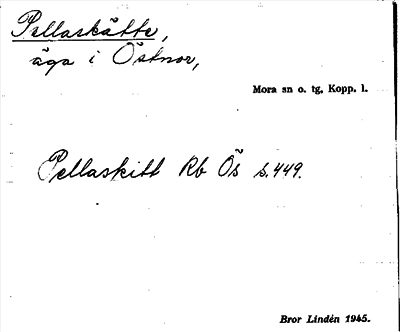 Pellaskätte,
äga i Östnor,
Mora sn o. tg, Kopp. l.
Pellaskitt Rb Ös s. 449.
Bror Lindén 1945.